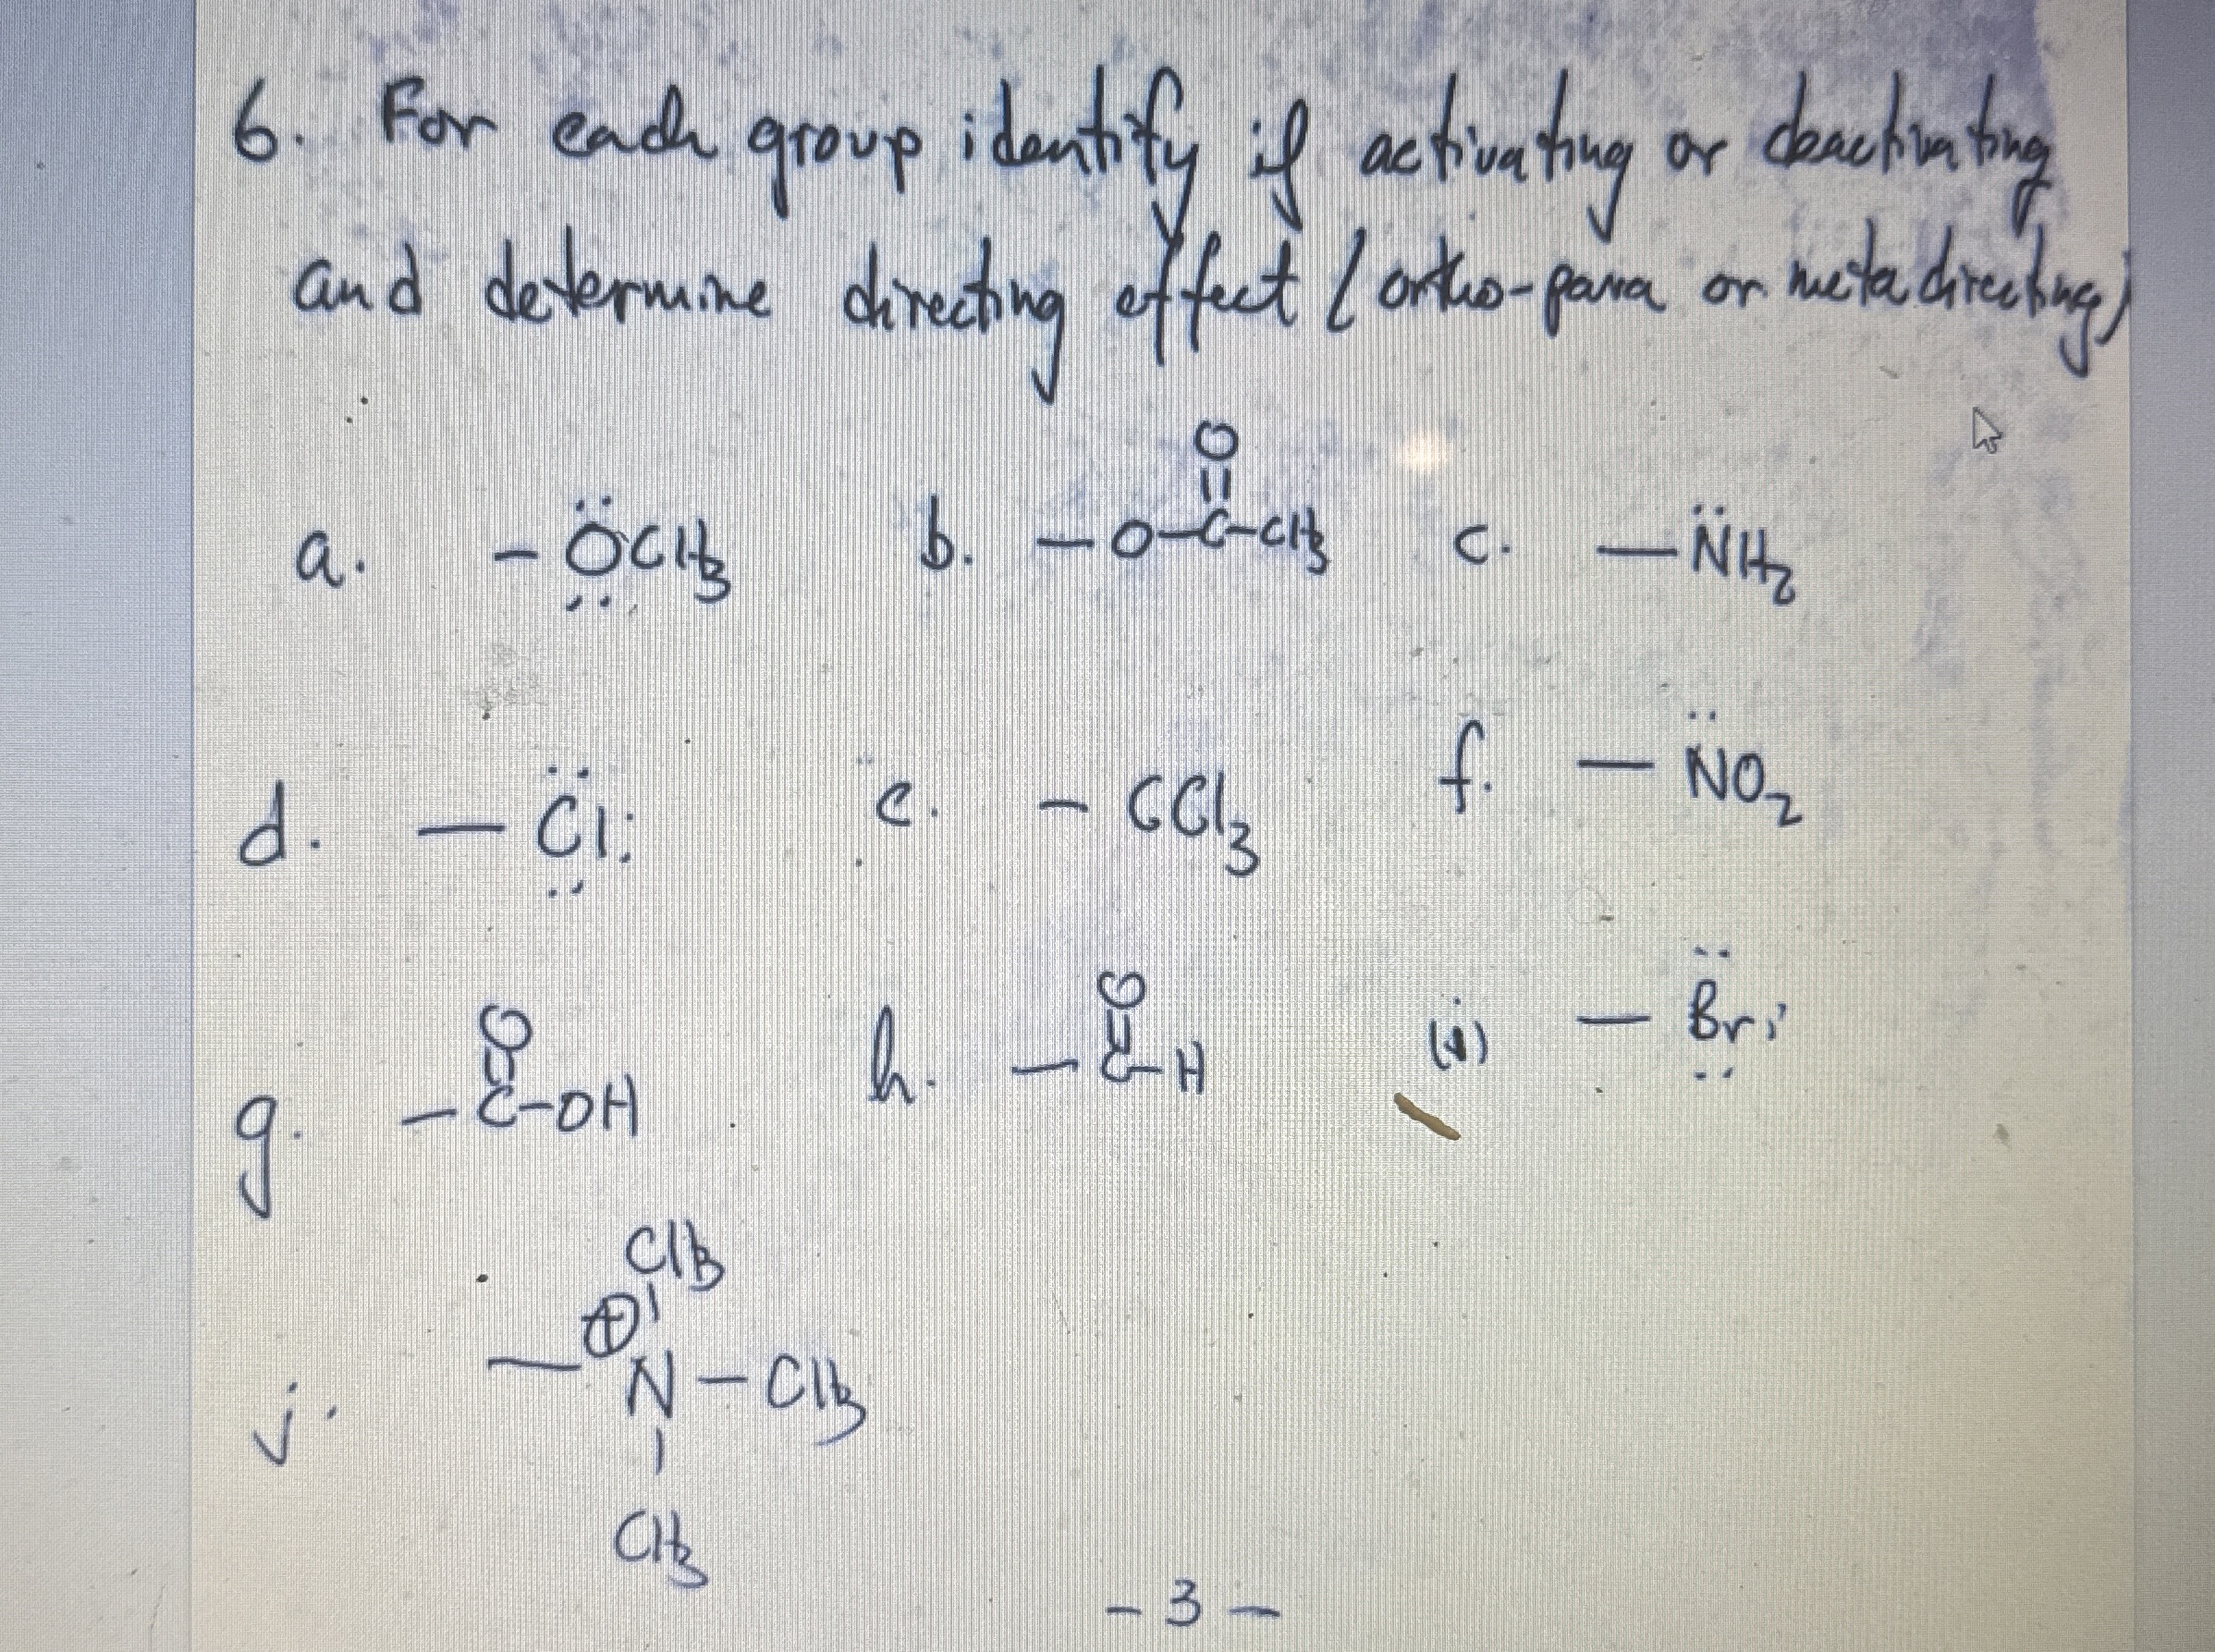 6. For each group identify if activating or deactivating
and determine directing effect (ortho-para or meta directing)
O
||
a. - ÖCH3 b. - O-C-CH3 c. - N̈H2
d. - C̈l: e. - CCl3 f. - N̈O2
O O
|| ||
g. - C-OH h. - C-H (i) - B̈r:
CH3
⊕ |
j. - N - CH3
|
CH3
- 3 -